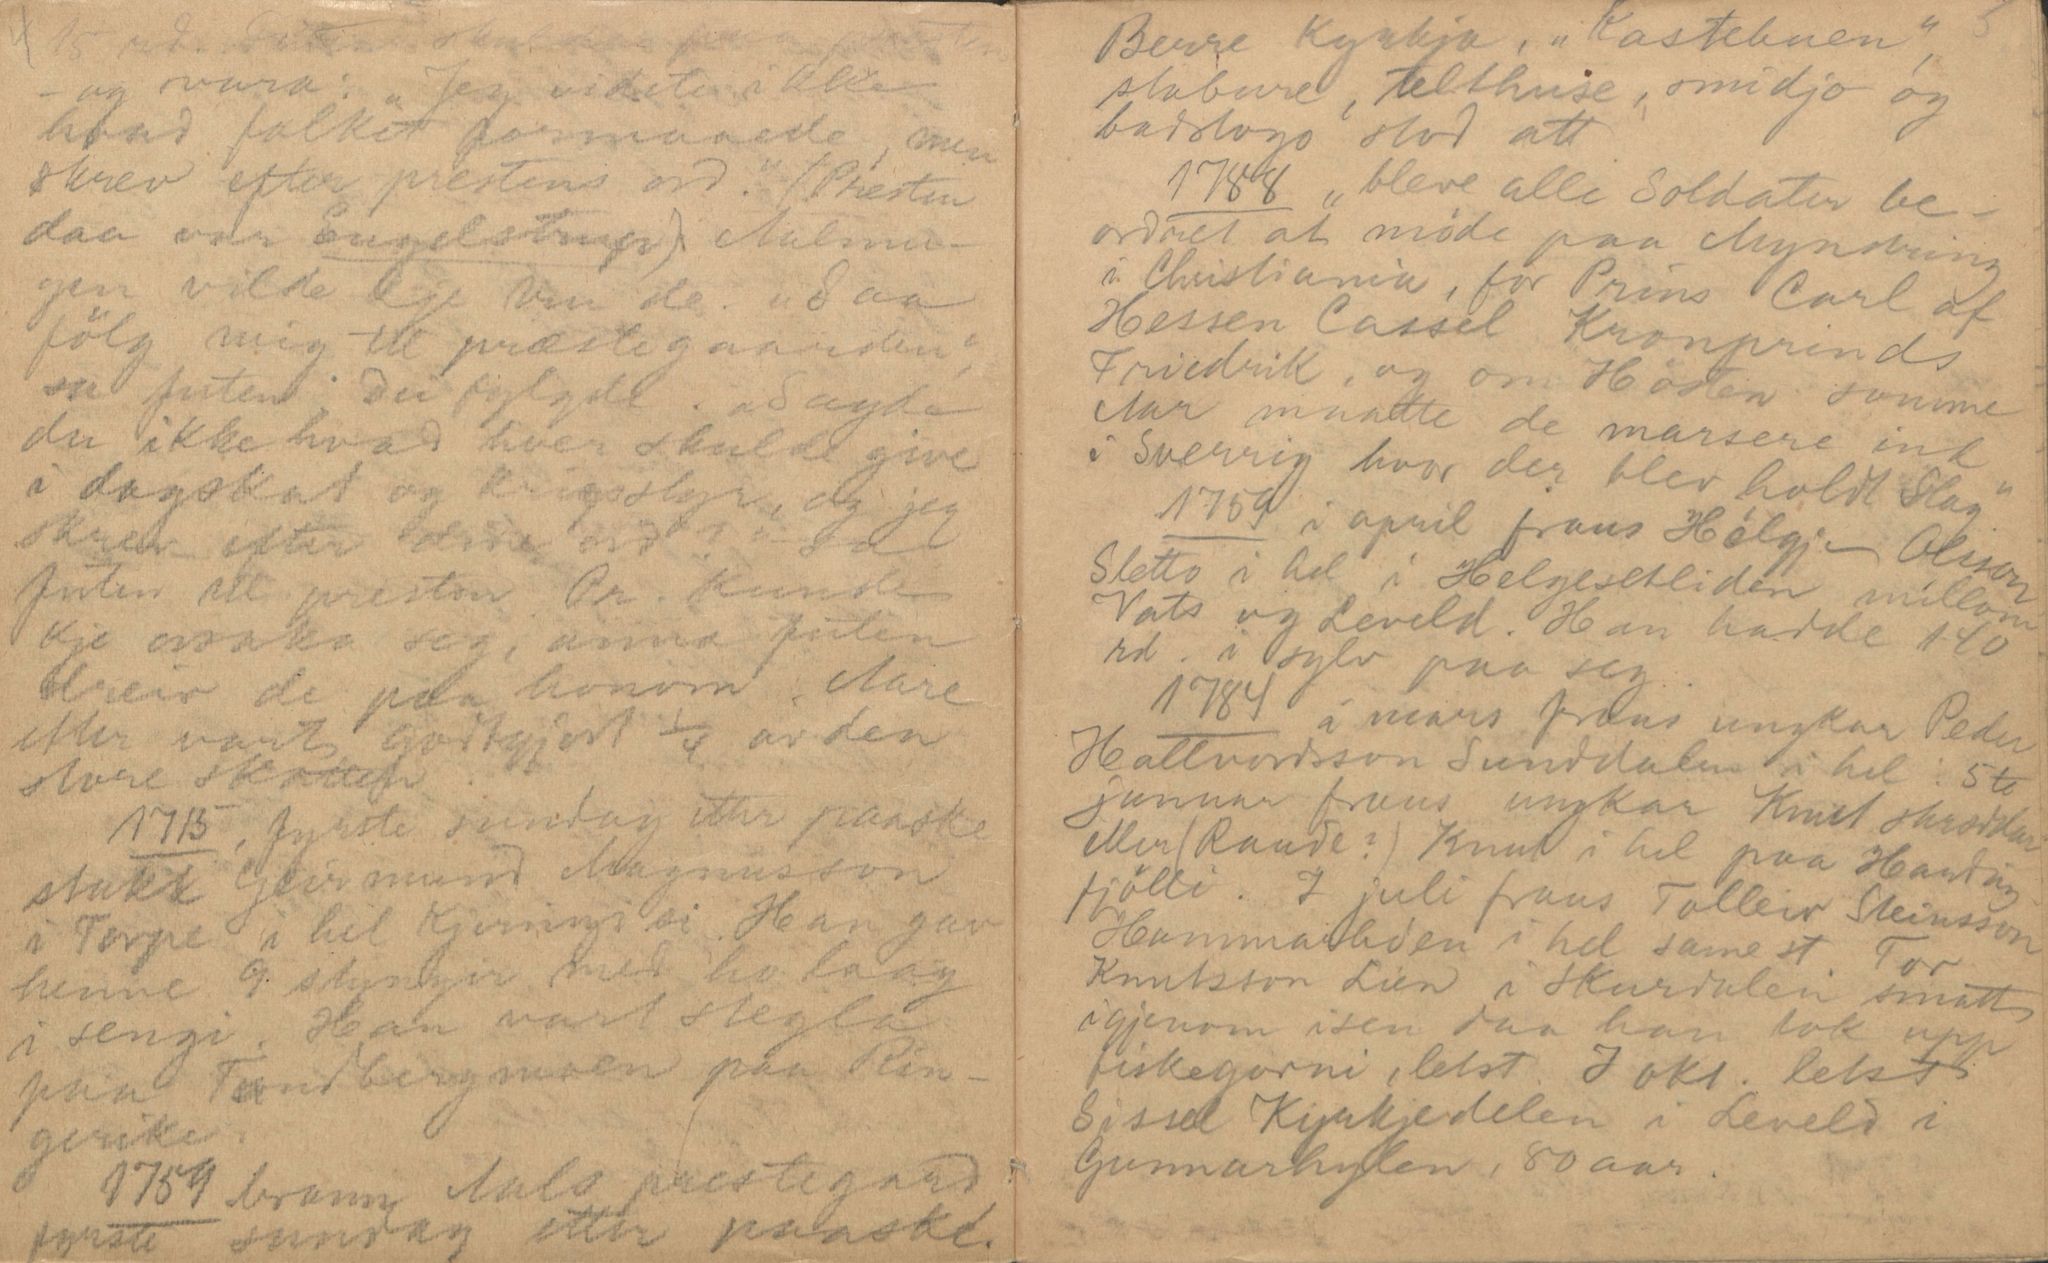 4
15 rd. Futen skulde paa presten
- og svara: „Jeg vidste ikke
hvad folket formaaede, men
skrev efter prestens ord." (Presten
daa var Engelstrup) Aalmu-
gen vilde kje tru de. „Saa
fölg mig til præstegaarden",
sa futen. Dei fylgde. „Sagde
du ikke hvad hver skulde give
i dagskat og krigsstyr, og jeg
skrev efter dine ord?" sa
futen til presten. Pr. kunde
kje orsaka seg, anna futen
dreiv de paa honom. Aare
etter vart godtgjort ¼ av den
store skatten.
1715, fyrste sundag etter paaske
stakk Geirmund Magnusson
i Torpe i hel Kjeringi si. Han gav
henne 9 styngir med ho laag
i sengi. Han vart stegla
paa Tandbergmoen paa Rin-
gerike.
1759 brann Aals prestegard
fyrste sundag etter paaske.
5
Berre Kyrkja, „Kastebuen",
stabure, telthuse, smidjo og
badstogo stod att
1788 „bleve alle Soldater be-
ordret at möde paa Mynstring
i Christiania, for Prins Carl af
Hessen Cassel Kronprinds
Friedrik, og om Hösten samme
Aar maatte de marsere ind
i Sverrig hvor der blev holdt Slag"
1759 i april fraus Helgje Olsson
Sletto i hel i Helgesetliden millom
Vats og Leveld. Han hadde 140
rd. i sylv paa seg.
1784 i mars fraus ungkar Peder
Hallvordsson Sunddalen i hel. 5te
januar fraus ungkar Knut skreddar
eller (Raude?) Knut i hel paa Hardang
fjölli. I juli fraus Tolleiv Steinsson
Hammarliden i hel samest. Tor
Knutsson Lien i Skurdalen smatt
igjenom isen daa han tok upp
fiskegorni, letst. I okt. letst
Sissel Kyrkjedelen i Leveld i
Gunnarhylen, 80 aar.